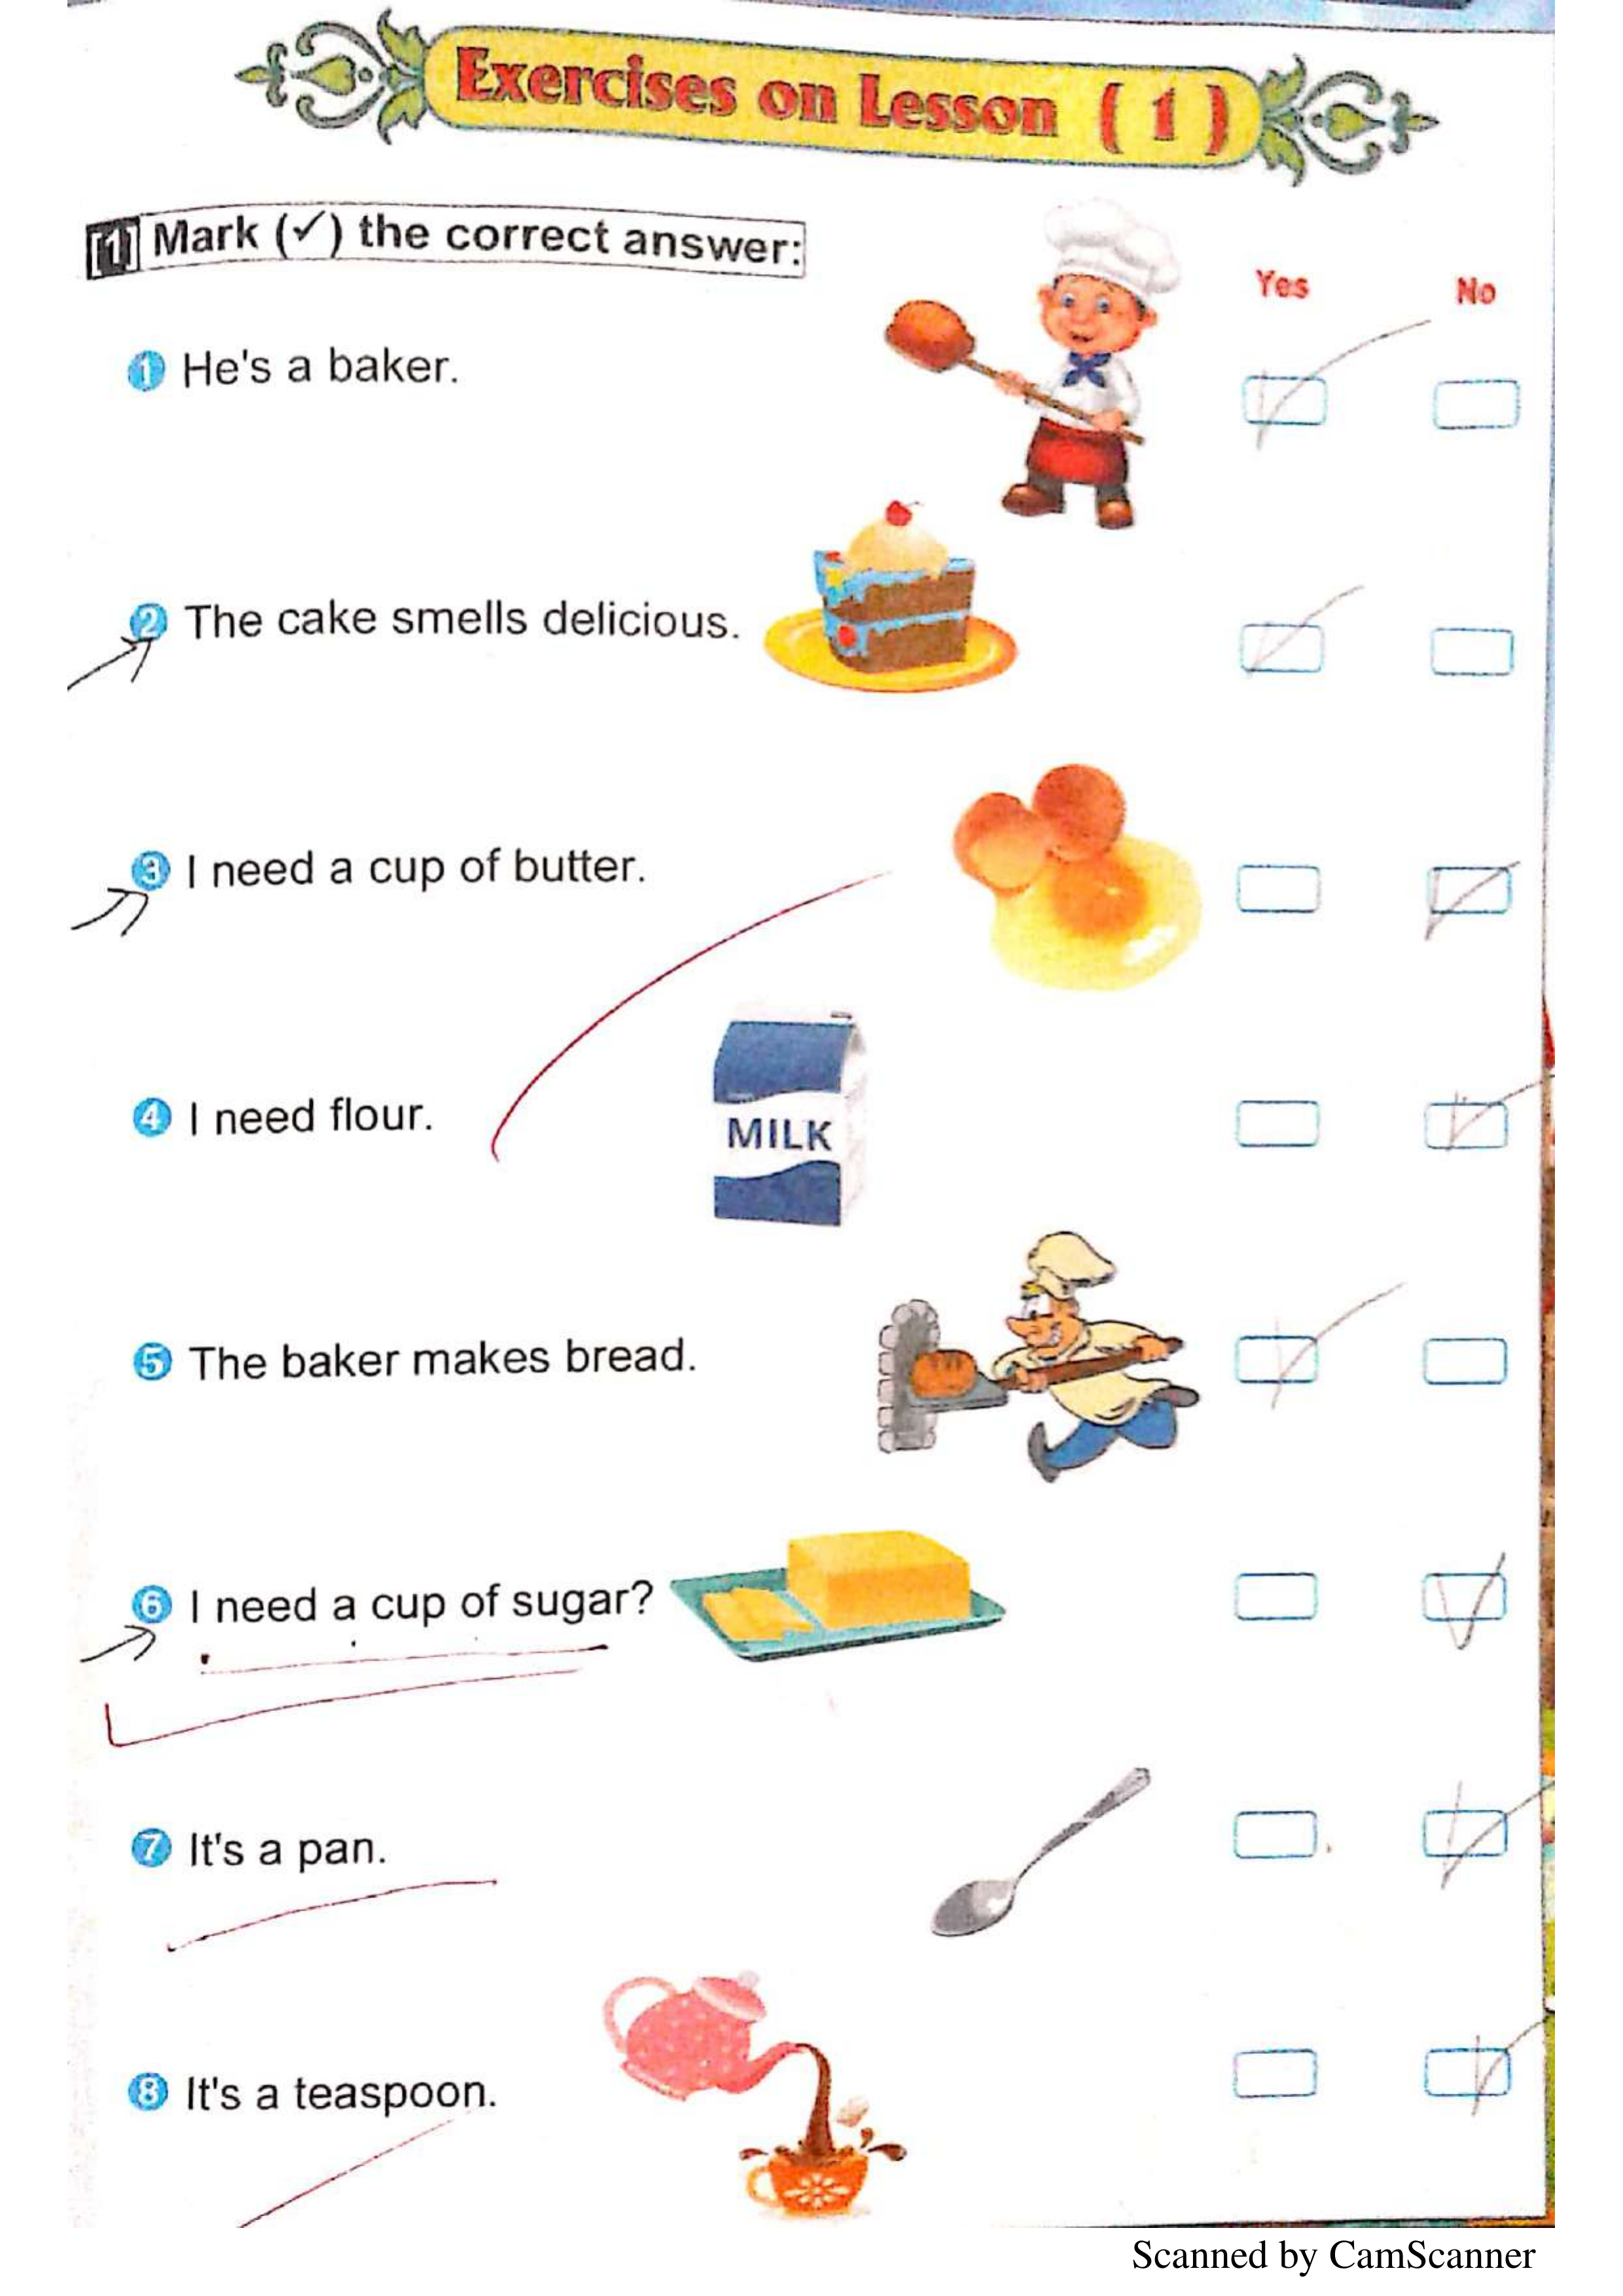 Exercises on Lesson ( 1 )
[1] Mark (✓) the correct answer:
Yes No
1 He's a baker.
2 The cake smells delicious.
3 I need a cup of butter.
4 I need flour.
MILK
5 The baker makes bread.
6 I need a cup of sugar?
7 It's a pan.
8 It's a teaspoon.
Scanned by CamScanner